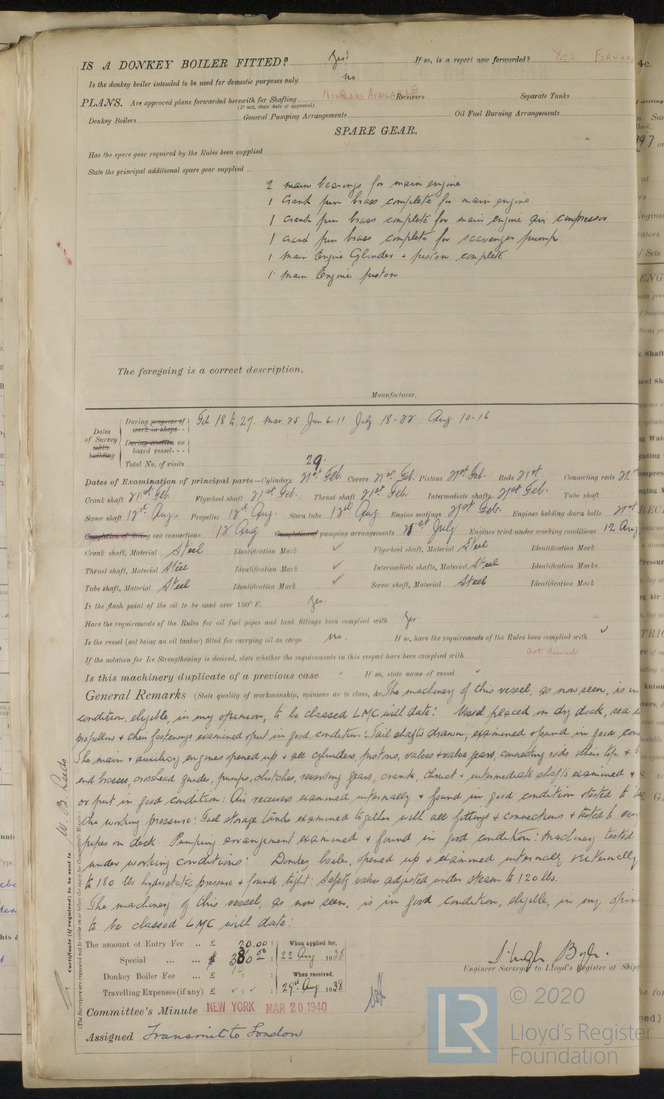 IS A DONKEY BOILER FITTED? Yes! If so, is a report now forwarded? YES
Is the donkey boiler intended to be used for domestic purposes only no.
PLANS. Are approved plans forwarded herewith for Shafting No Plans Available Receivers Separate Tanks
(If not, state date of approval)
Donkey Boilers General Pumping Arrangements Oil Fuel Burning Arrangements
SPARE GEAR.
Has the spare gear required by the Rules been supplied
State the principal additional spare gear supplied
2 main bearings for main engine
1 crank pin brass complete for main engine
1 crank pin brass complete for main engine air compressor
1 crank pin brass complete for scavenger pump
1 main Engine Cylinder + piston complete
1 main Engine piston
The foregoing is a correct description,
Manufacturer.
Dates of Survey while building
During progress of work in shops - -
During erection on board vessel - - -
Total No. of visits 29.
Feb 18 to 27 Mar. 25 Jun 6-11 July 18-22 Aug 10-16
Dates of Examination of principal parts—Cylinders 21st Feb Covers 21st Feb. Pistons 21st Feb. Rods 21st Connecting rods 21st
Crank shaft 21st Feb. Flywheel shaft 21st Feb. Thrust shaft 21st Feb. Intermediate shafts 21st Feb. Tube shaft
Screw shaft 12th Aug. Propeller 12th Aug. Stern tube 12th Aug Engine seatings 21st Feb. Engines holding down bolts 21st
Completion of fitting sea connections 12 Aug Completion of pumping arrangements 21st July Engines tried under working conditions 12 Aug
Crank shaft, Material Steel Identification Mark ✓ Flywheel shaft, Material Steel Identification Mark
Thrust shaft, Material Steel Identification Mark ✓ Intermediate shafts, Material Steel Identification Mark
Tube shaft, Material Steel Identification Mark ✓ Screw shaft, Material Steel Identification Mark
Is the flash point of the oil to be used over 150° F. Yes.
Have the requirements of the Rules for oil fuel pipes and tank fittings been complied with Yes
Is the vessel (not being an oil tanker) fitted for carrying oil as cargo no. If so, have the requirements of the Rules been complied with ✓
If the notation for Ice Strengthening is desired, state whether the requirements in this respect have been complied with not desired
Is this machinery duplicate of a previous case If so, state name of vessel
General Remarks (State quality of workmanship, opinions as to class, &c. The machinery of this vessel, as now seen, is in
condition, eligible, in my opinion, to be classed LMC with date: Vessel placed in dry dock, sea
propellers + their fastenings examined + put in good condition: Tail shafts drawn, examined + found in good con
The main + auxiliary engines opened up + all cylinders, pistons, valves + valve gears, connecting rods
end brasses, crosshead guides, pumps, clutches, reversing gears, crank, thrust + intermediate shafts examined +
or put in good condition: Air receivers examined internally + found in good condition tested to
the working pressure: Fuel storage tanks examined together with all fittings + connections + tested to
pipes on deck. Pumping arrangement examined + found in good condition: Machinery tested
under working conditions: Donkey boiler, opened up + examined internally + externally
to 180 lbs hydrostatic pressure + found tight: Safety valve adjusted under steam to 120 lbs.
The machinery of this vessel, as now seen, is in good condition, eligible, in my opin
to be classed LMC with date:
Certificate (if required) to be sent to
(The Surveyors are requested not to write on or below the space for Committee's Minute.)
The amount of Entry Fee .. £ 20.00 : When applied for,
Special ... ... $ 22 Aug 1938
Donkey Boiler Fee ... £ When received,
Travelling Expenses (if any) £ 29th Aug 1938
Engineer Surveyor to Lloyd's Register of Ship
Committee's Minute NEW YORK MAR 20 1940
Assigned Transmit to London
LR
© 2020
Lloyd's Register
Foundation